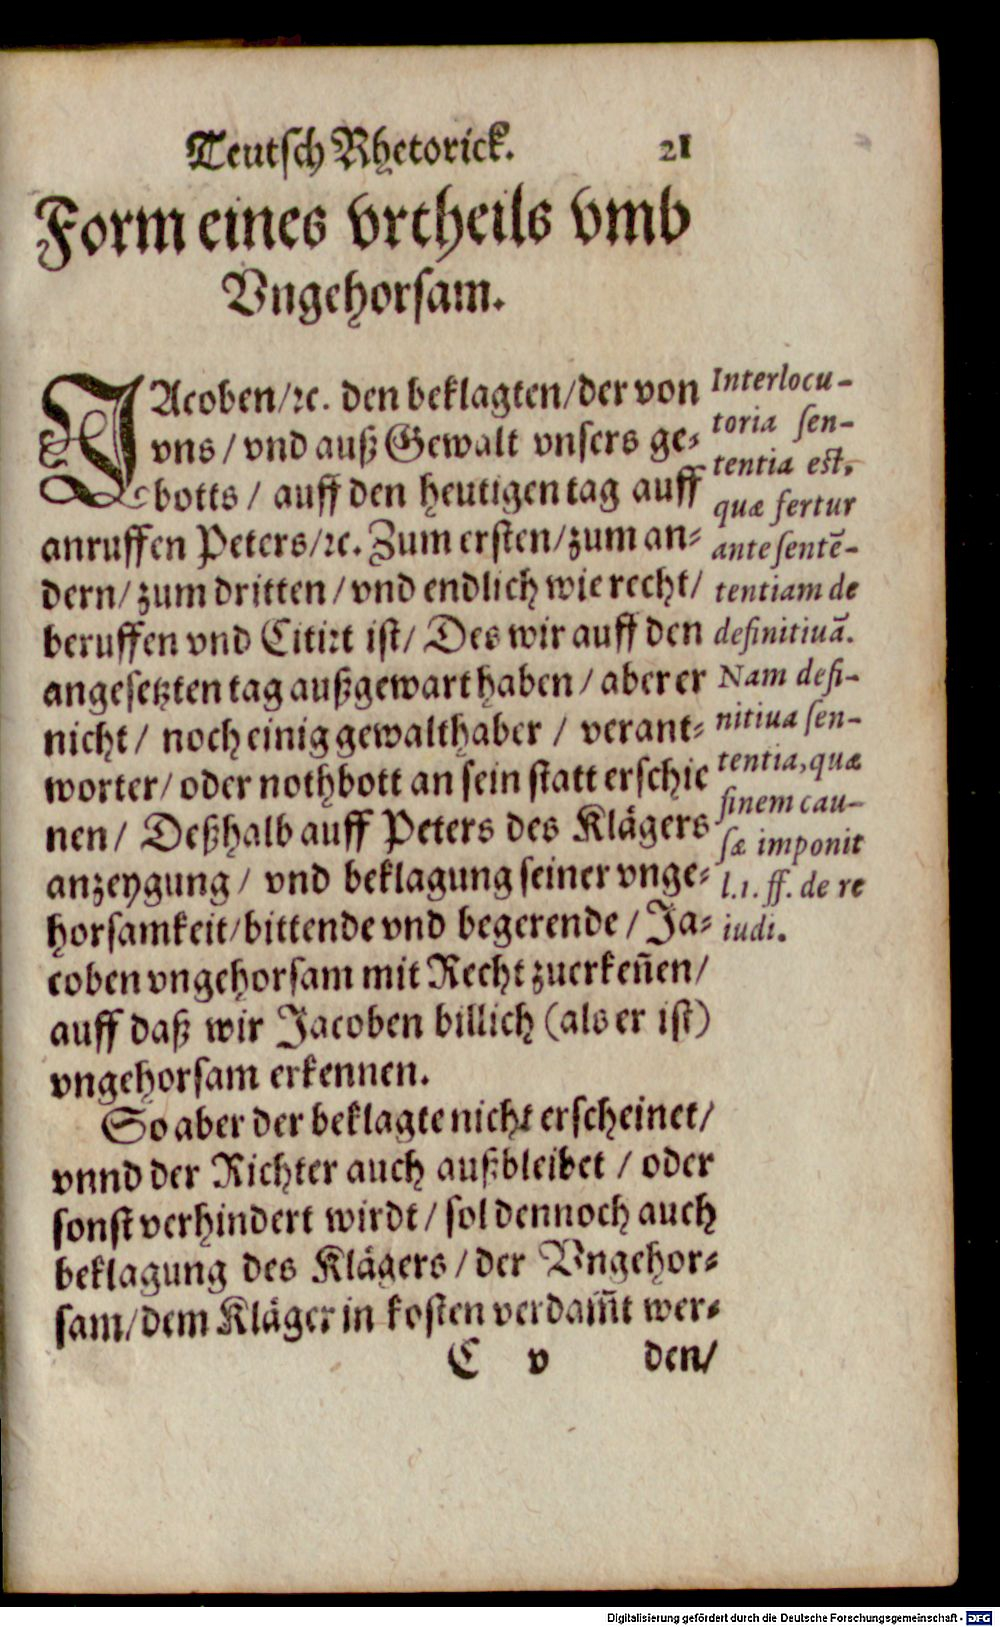 Teutsch Rhetorick. 21
Form eines vrtheils vmb
Vngehorsam.
JAcoben/ꝛc. den beklagten/der von
vns/ vnd auß Gewalt vnsers ge⸗
botts/ auff den heutigen tag auff
anruffen Peters/ꝛc. Zum ersten/zum an⸗
dern/ zum dritten/ vnd endlich wie recht/
beruffen vnd Citirt ist/ Des wir auff den
angesetzten tag außgewart haben/ aber er
nicht/ noch einig gewalthaber/ verant⸗
worter/ oder nothbott an sein statt erschie
nen/ Deßhalb auff Peters des Klägers
anzeygung/ vnd beklagung seiner vnge⸗
horsamkeit/bittende vnd begerende/ Ja⸗
coben vngehorsam mit Recht zuerkeñen/
auff daß wir Jacoben billich (als er ist)
vngehorsam erkennen.
So aber der beklagte nicht erscheinet/
vnnd der Richter auch außbleibet/ oder
sonst verhindert wirdt/ sol dennoch auch
beklagung des Klägers/ der Vngehor⸗
sam/dem Kläger in kosten verdam̃t wer⸗
C v den/
Interlocu-
toria sen-
tentia est,
quæ fertur
ante sentē-
tentiam de
definitiuā.
Nam defi-
nitiua sen-
tentia, quæ
finem cau-
sæ imponit
l.1. ff. de re
iudi.
Digitalisierung gefördert durch die Deutsche Forschungsgemeinschaft - DFG